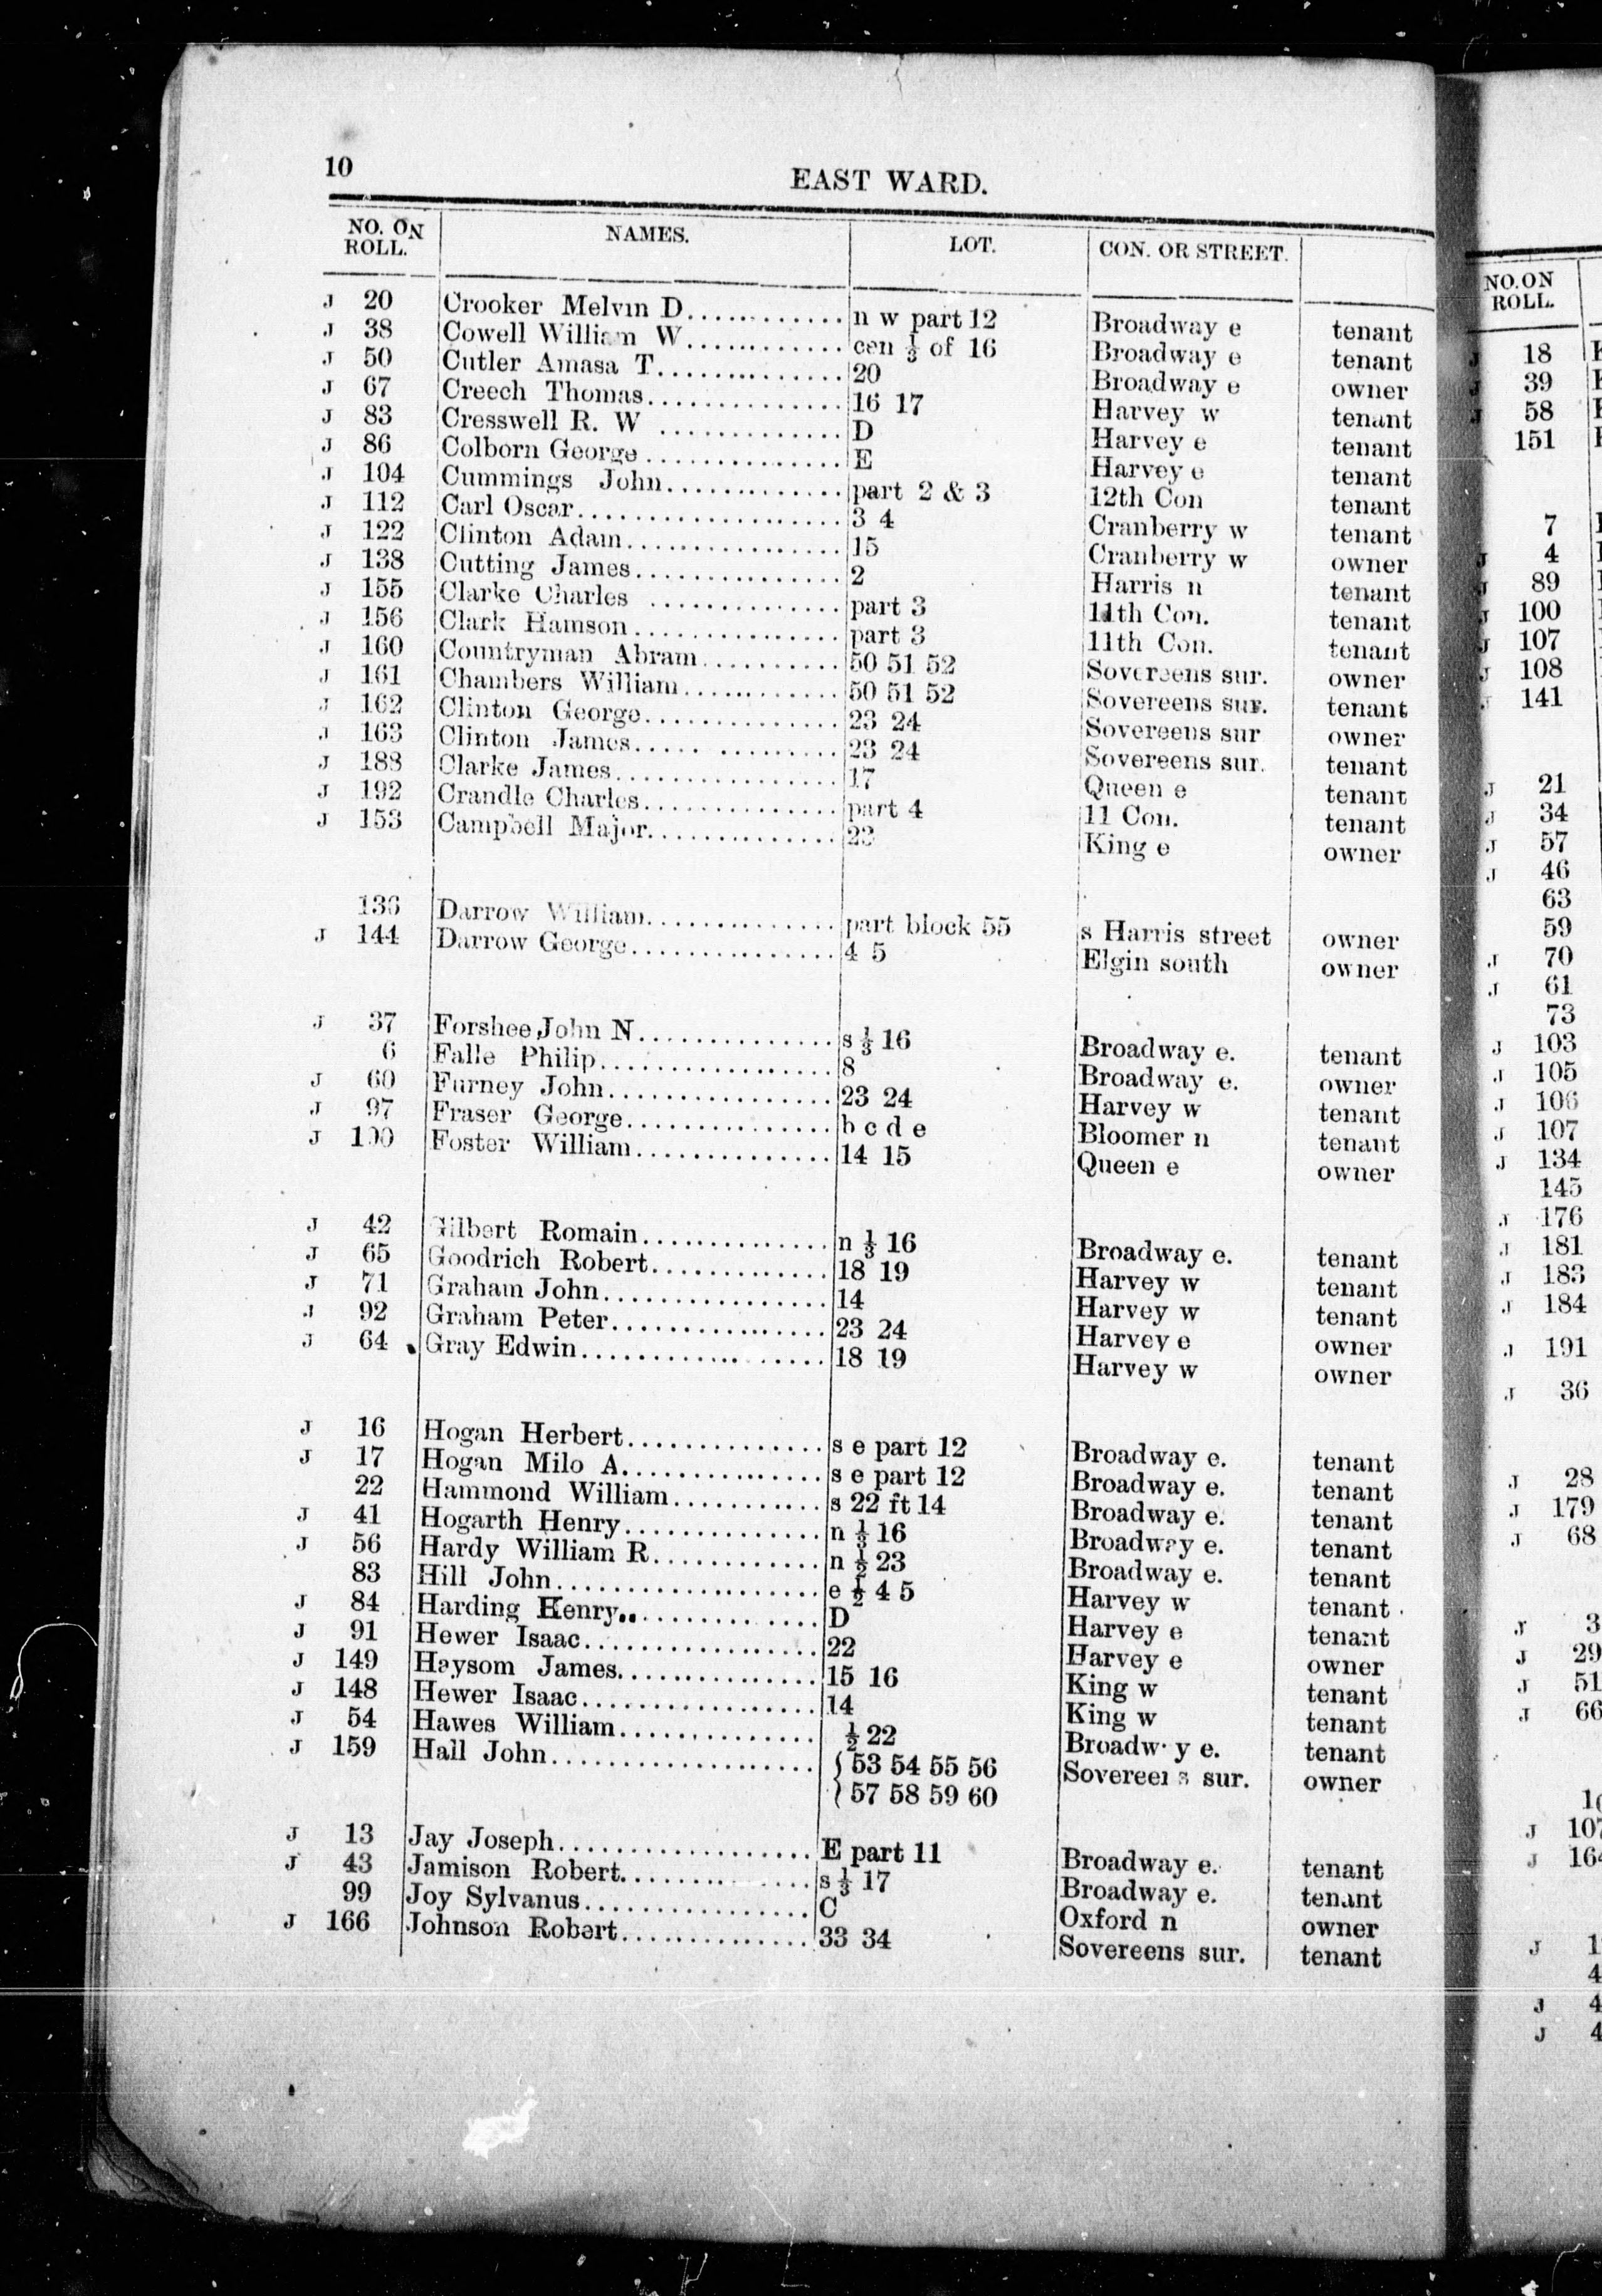 10
EAST WARD.
NO. ON ROLL. NAMES. LOT. CON. OR STREET.
J 20 Crooker Melvin D............ n w part 12 Broadway e tenant
J 38 Cowell William W............ cen ⅓ of 16 Broadway e tenant
J 50 Cutler Amasa T.............. 20 Broadway e owner
J 67 Creech Thomas............... 16 17 Harvey w tenant
J 83 Cresswell R. W ............. D Harvey e tenant
J 86 Colborn George............... E Harvey e tenant
J 104 Cummings John............. part 2 & 3 12th Con tenant
J 112 Carl Oscar.................... 3 4 Cranberry w tenant
J 122 Clinton Adam................. 15 Cranberry w owner
J 138 Cutting James................ 2 Harris n tenant
J 155 Clarke Charles .............. part 3 11th Con. tenant
J 156 Clark Hamson................ part 3 11th Con. tenant
J 160 Countryman Abram.......... 50 51 52 Sovereens sur. owner
J 161 Chambers William............ 50 51 52 Sovereens sur. tenant
J 162 Clinton George............... 23 24 Sovereens sur owner
J 163 Clinton James..... ......... 23 24 Sovereens sur. tenant
J 188 Clarke James................. 17 Queen e tenant
J 192 Crandle Charles............... part 4 11 Con. tenant
J 153 Campbell Major.............. 23 King e owner
136 Darrow William.............. part block 55 s Harris street owner
J 144 Darrow George................ 4 5 Elgin south owner
J 37 Forshee John N............... s ⅓ 16 Broadway e. tenant
6 Falle Philip................... 8 Broadway e. owner
J 60 Furney John................. 23 24 Harvey w tenant
J 97 Fraser George................ b c d e Bloomer n tenant
J 190 Foster William............... 14 15 Queen e owner
J 42 Gilbert Romain............... n ⅓ 16 Broadway e. tenant
J 65 Goodrich Robert............. 18 19 Harvey w tenant
J 71 Graham John................. 14 Harvey w tenant
J 92 Graham Peter................ 23 24 Harvey e owner
J 64 Gray Edwin............ ...... 18 19 Harvey w owner
J 16 Hogan Herbert............... s e part 12 Broadway e. tenant
J 17 Hogan Milo A............... s e part 12 Broadway e. tenant
22 Hammond William............ s 22 ft 14 Broadway e. tenant
J 41 Hogarth Henry............... n ⅓ 16 Broadway e. tenant
J 56 Hardy William R............. n ½ 23 Broadway e. tenant
83 Hill John.................... e ½ 4 5 Harvey w tenant
J 84 Harding Henry............... D Harvey e tenant
J 91 Hewer Isaac.................. 22 Harvey e owner
J 149 Haysom James............... 15 16 King w tenant
J 148 Hewer Isaac.................. 14 King w tenant
J 54 Hawes William............... ½ 22 Broadw y e. tenant
J 159 Hall John.................... { 53 54 55 56 Sovereens sur. owner
{ 57 58 59 60
J 13 Jay Joseph................... E part 11 Broadway e. tenant
J 43 Jamison Robert.............. s ⅓ 17 Broadway e. tenant
99 Joy Sylvanus................. C Oxford n owner
J 166 Johnson Robert.............. 33 34 Sovereens sur. tenant
NO. ON ROLL.
J 18
J 39
J 58
151
7
J 4
J 89
J 100
J 107
J 108
J 141
J 21
J 34
J 57
J 46
63
59
J 70
J 61
73
J 103
J 105
J 106
J 107
J 134
145
J 176
J 181
J 183
J 184
J 191
J 36
J 28
J 179
J 68
J 3
J 29
J 51
J 66
J 107
J
J
J
J